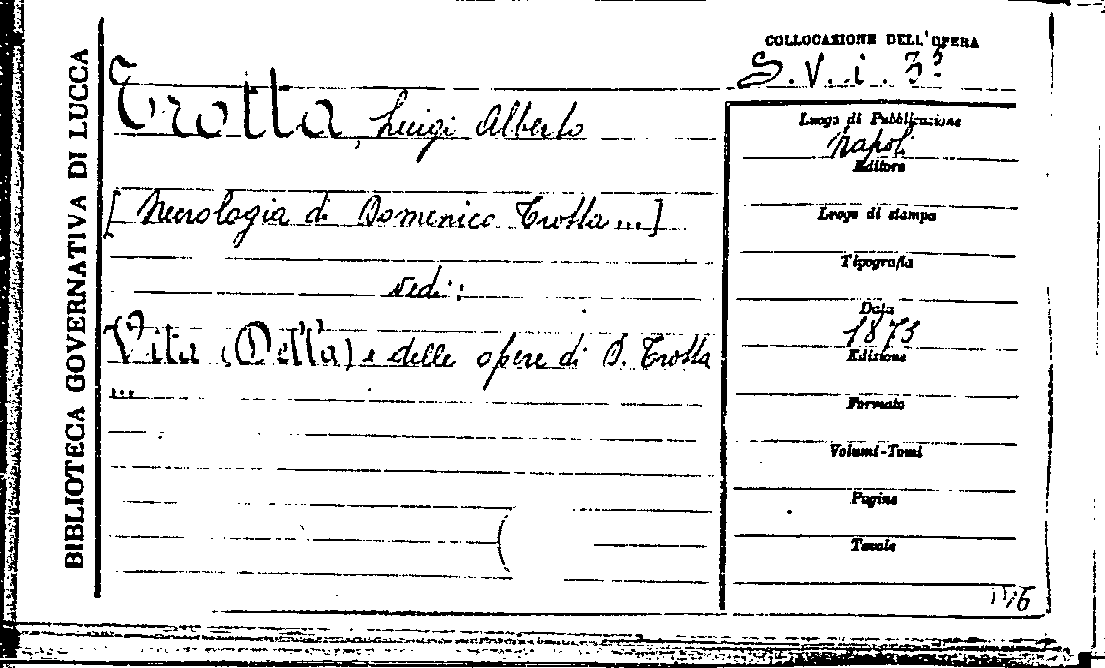 BIBLIOTECA GOVERNATIVA DI LUCCA
COLLOCAZIONE DELL'OPERA
S. V. i. 3³
Trotta, Luigi Alberto
[Necrologia di Domenico Trotta...]
vedi:
Vita (Della) e delle opere di D. Trotta
...
Luogo di Pubblicazione
Napoli
Editore
Luogo di stampa
Tipografia
Data
1873
Edizione
Formato
Volumi-Tomi
Pagine
Tavole